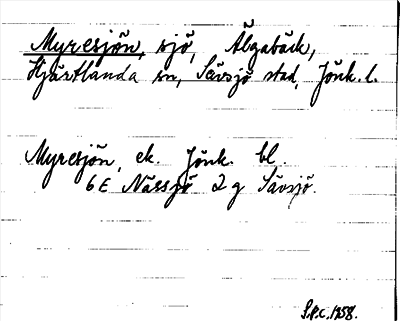 Myresjön, sjö, Älgabäck,
Hjärtlanda sn, Sävsjö stad, Jönk. l.
Myresjön, ek. Jönk. bl.
6E Nässjö 2g Sävsjö.
S.P.C. 1958.